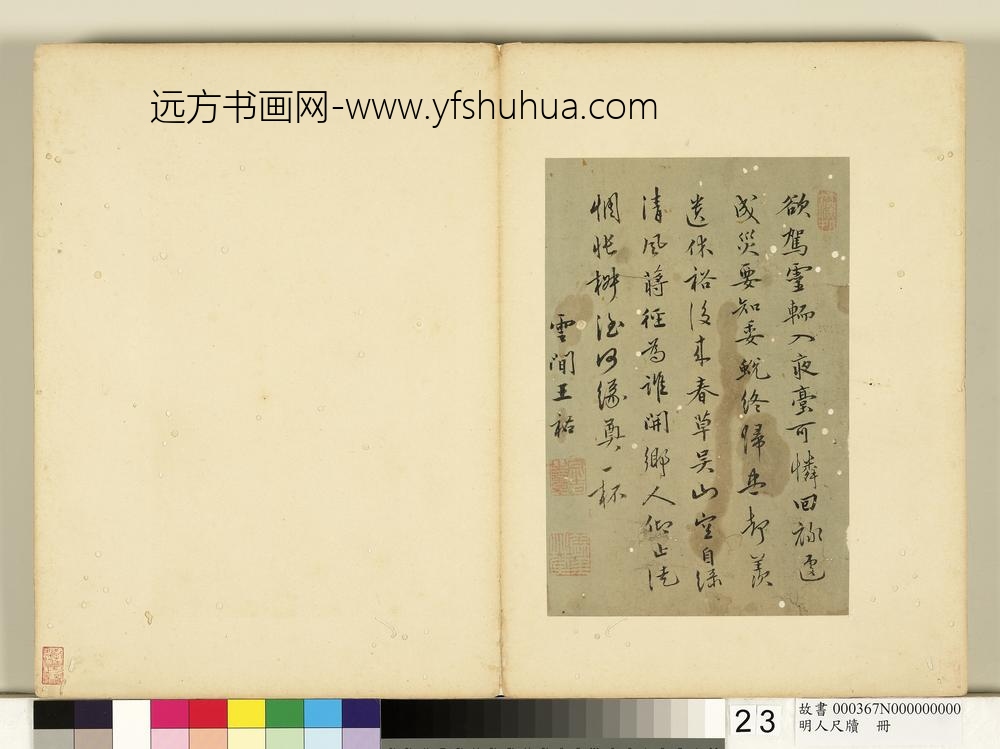 远方书画网-www.yfshuhua.com
欲駕靈輀入夜臺可憐回祿遽
成災要知委蛻終歸盡却羨
遺休裕後來春草吳山空自綠
清風蔣徑為誰開鄉人仰止徒
惆悵椒酒何緣奠一杯
雲間王祐
23
故書 000367N000000000
明人尺牘 冊